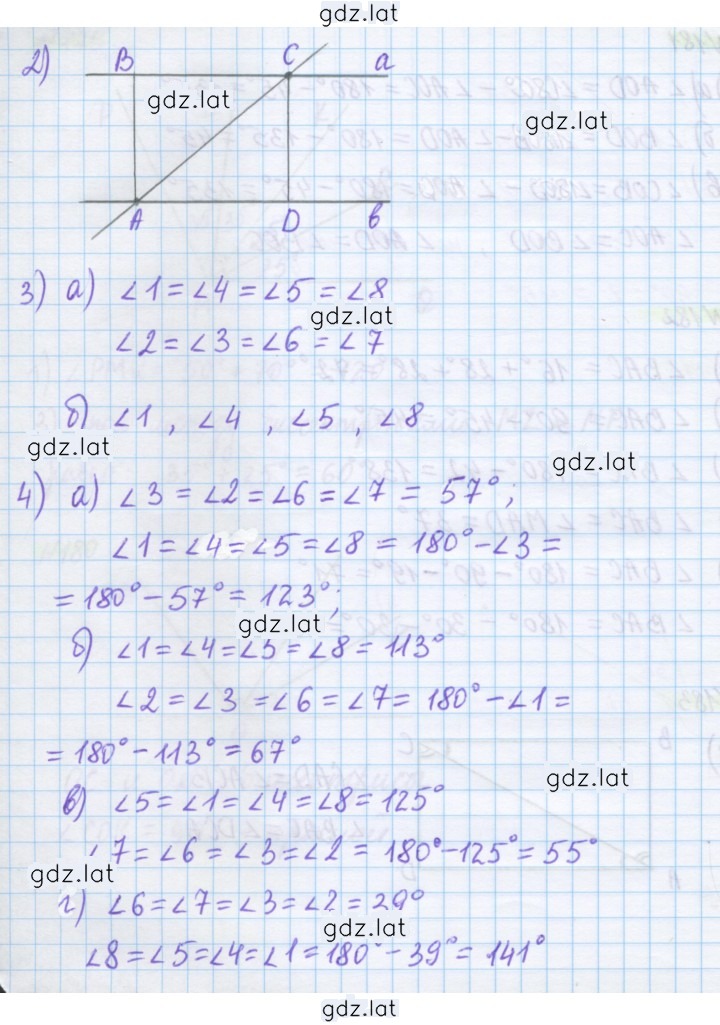 gdz.lat
2) B C a
gdz.lat
gdz.lat
A D b
3) а) ∠1 = ∠4 = ∠5 = ∠8
gdz.lat
∠2 = ∠3 = ∠6 = ∠7
б) ∠1, ∠4, ∠5, ∠8
gdz.lat
gdz.lat
4) а) ∠3 = ∠2 = ∠6 = ∠7 = 57°;
∠1 = ∠4 = ∠5 = ∠8 = 180° - ∠3 =
= 180° - 57° = 123°;
gdz.lat
б) ∠1 = ∠4 = ∠5 = ∠8 = 113°
∠2 = ∠3 = ∠6 = ∠7 = 180° - ∠1 =
= 180° - 113° = 67°
gdz.lat
в) ∠5 = ∠1 = ∠4 = ∠8 = 125°
∠7 = ∠6 = ∠3 = ∠2 = 180° - 125° = 55°
gdz.lat
г) ∠6 = ∠7 = ∠3 = ∠2 = 39°
gdz.lat
∠8 = ∠5 = ∠4 = ∠1 = 180° - 39° = 141°
gdz.lat